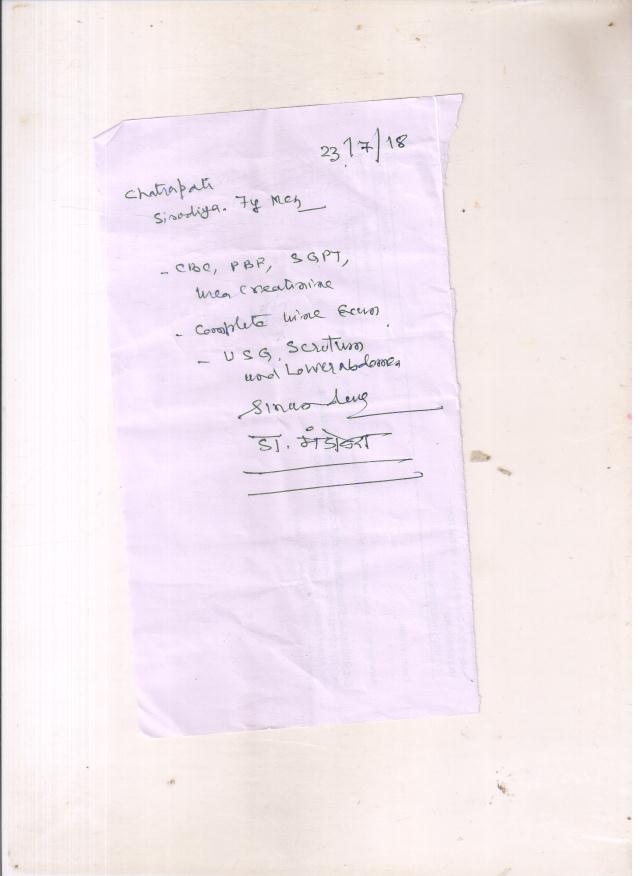 23/7/18
Chatrapati
Sisodiya. 7y Mch
- CBC, PBF, SGPT,
Urea Creatinine
- Complete Urine Exam
- USG, Scrotum
and Lower abdomen
डा.